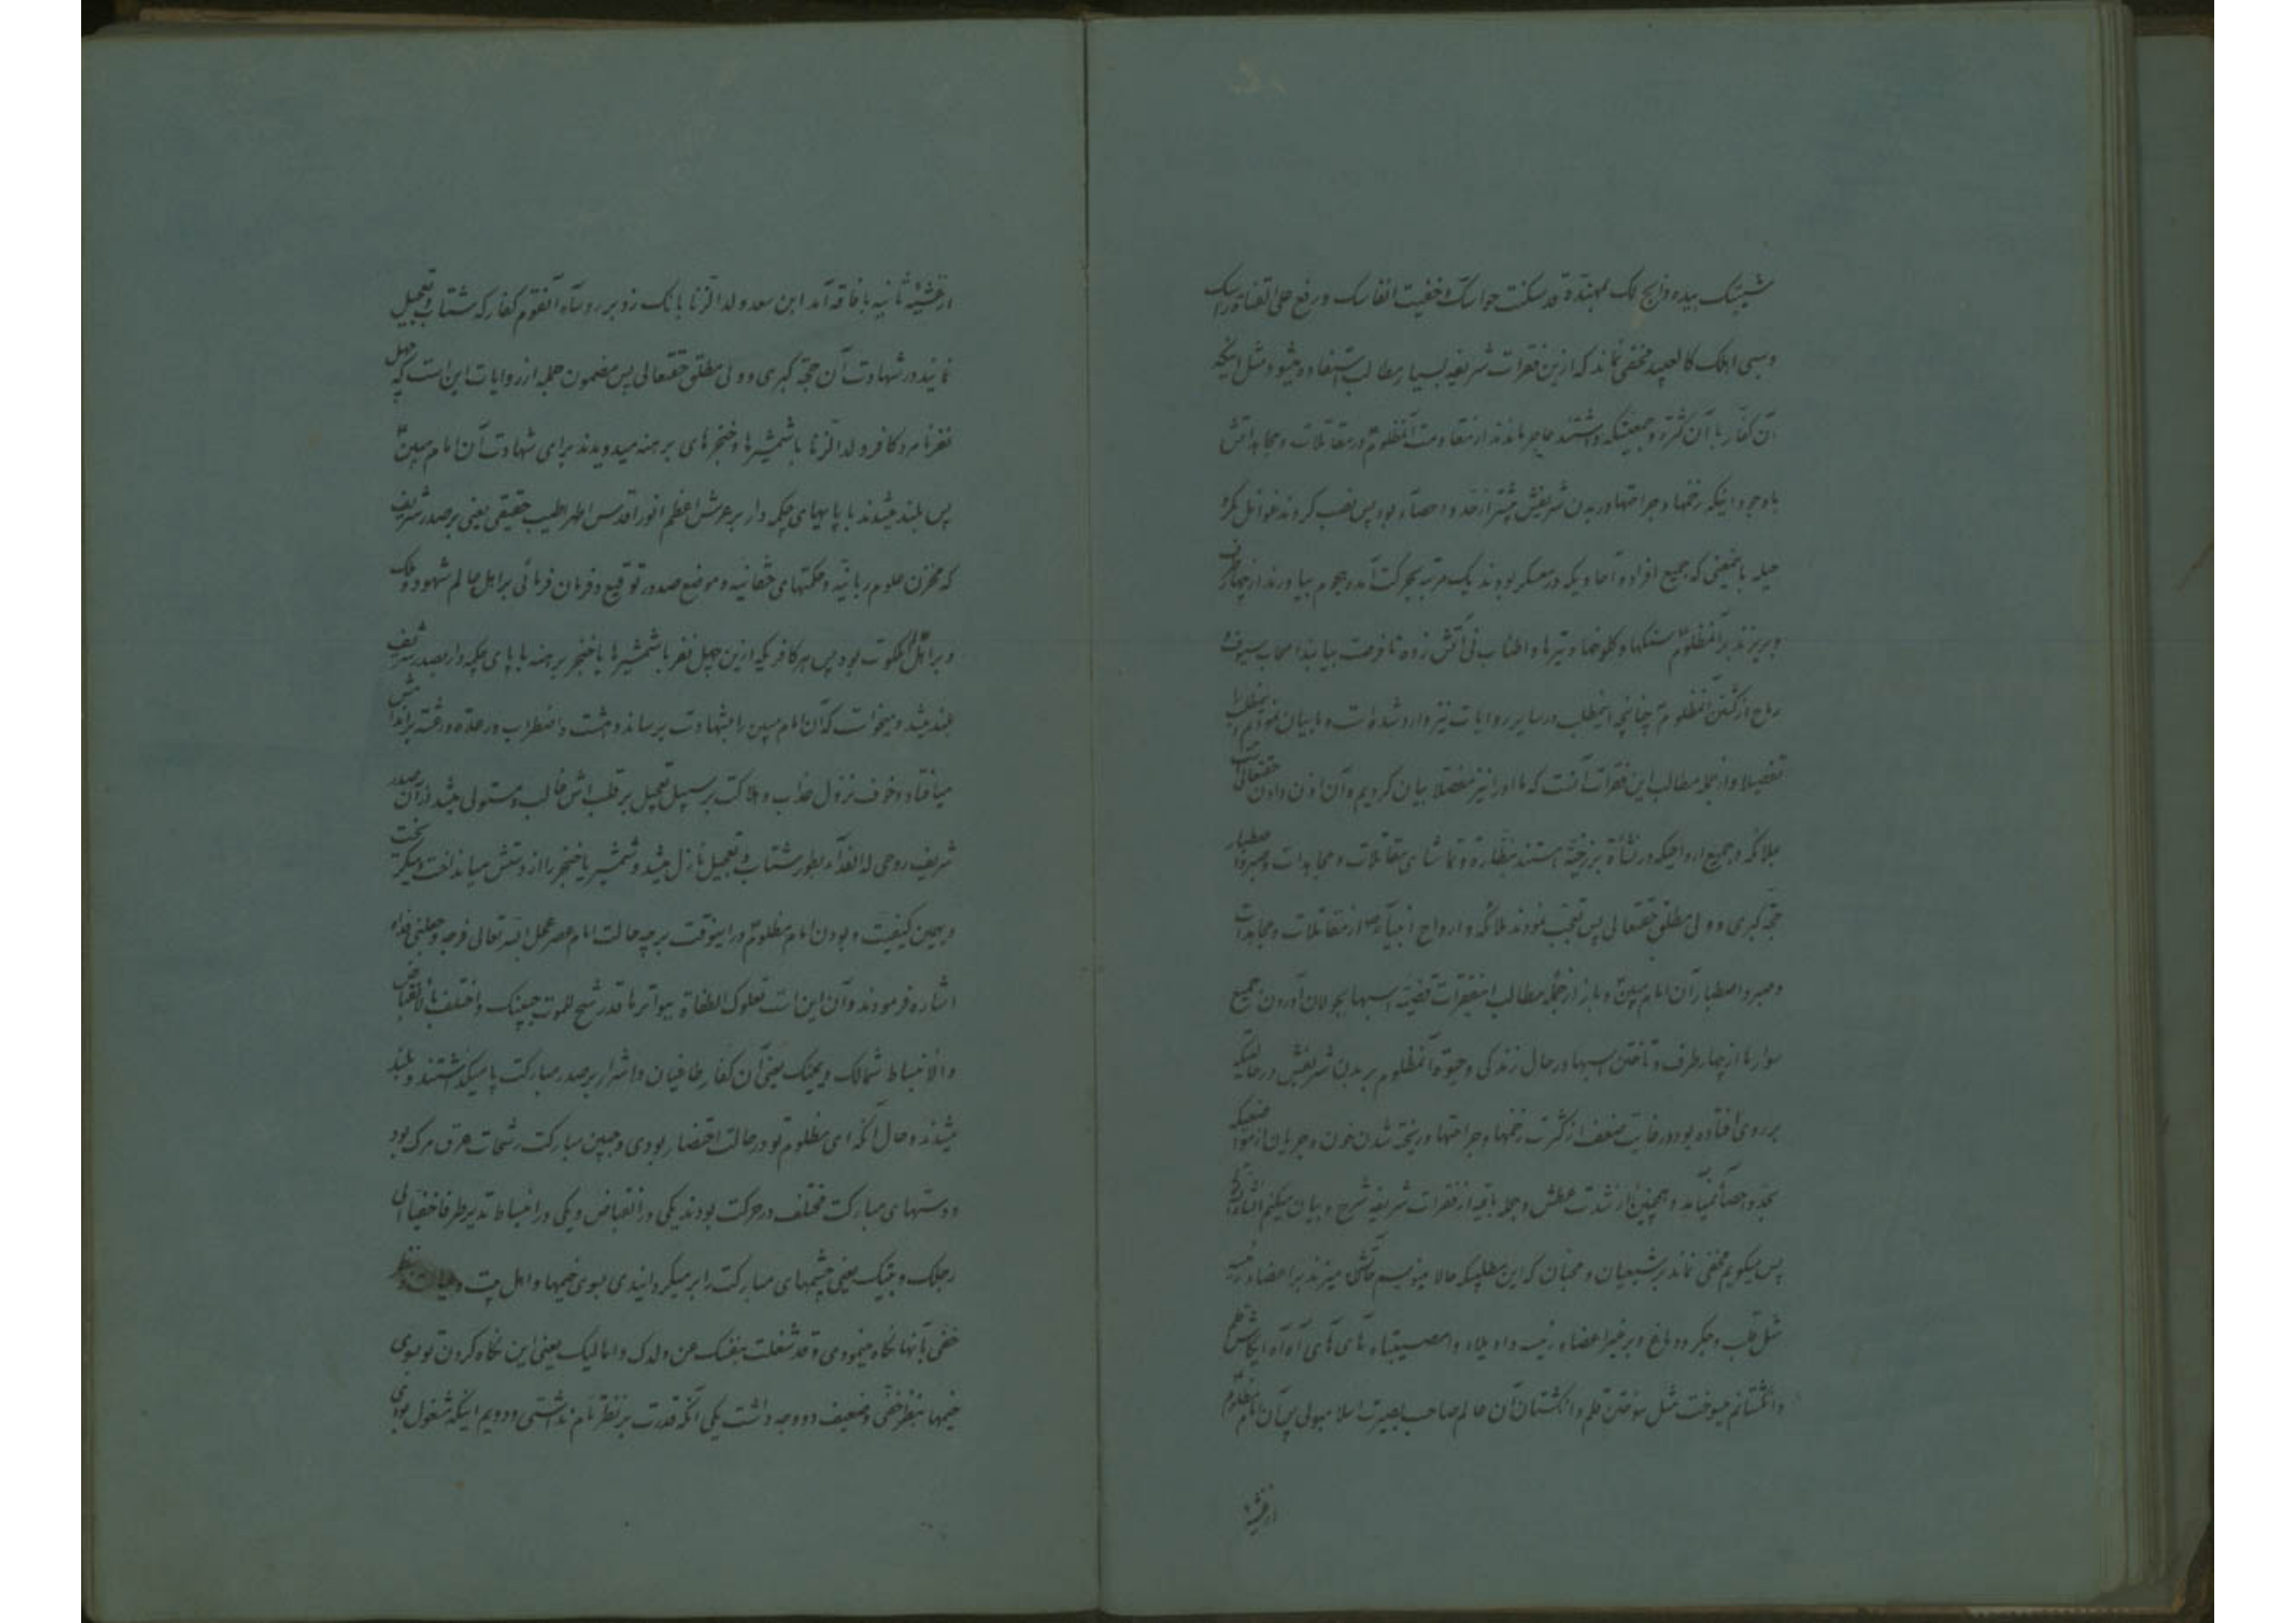 شیبتک بیده ذابح لک بمهنده قد سکنت حواسک و خفیت انفاسک و رفع علی القناة راسک
وسبی اهلک کالعبید مخفی نماند که ازین فقرات شریفه بسیار مطالب استفاده میشود مثل اینکه
آن کفار با آن کثرة و جمعیتیکه داشتند عاجز ماندند از مقاومت آنمظلوم در مقاتلات و مجاهداتش
باوجود اینکه زخمها و جراحتها در بدن شریفش بیشتر از حد و احصاء بود پس نصب کردند غوائل مکر
حیله بامعنی که جمیع افراد و آحادیکه در معسکر بودند یک مرتبه بحرکت آمده هجوم بیاورند از چهار طرف
و بریزند بر آنمظلوم سنگها و کلوخها و تیرها و اطناب نی آتش زده تا فرصت بیابند اصحاب سیوف و
رماح از کشتن آنمظلوم چنانچه اینمطلب در سایر روایات نیز وارد شده است و ما بیان نمودیم اینمطلب را
تفصیلا و از جمله مطالب این فقرات آنست که ما او را نیز مفصلا بیان کردیم و آن اذن دادن حقتعالی است
ملائکه و جمیع ارواحیکه در نشأة برزخیّه هستند بنظاره و تماشای مقاتلات و مجاهدات و صبر و اصطبار
حجّه کبری و ولی مطلق حقتعالی پس تعجب نمودند ملائکه و ارواح انبیآء از مقاتلات و مجاهدات
و صبر و اصطبار آن امام مبین و باز از جمله مطالب اینفقرات قضیّه اسبها بجولان آوردن جمیع
سوارها از چهار طرف و تاختن اسبها در حال زندگی و حیوة آنمظلوم بر بدن شریفش در حالتیکه
بر روی افتاده بود در غایت ضعف از کثرت زخمها و جراحتها و ریخته شدن خون و جریان از مواضعیکه
بحد و احصآء نمیآمد و همچنین از شدت عطش و جمله باقیه از فقرات شریفه شرح و بیان میکنم
پس میگویم مخفی نماند بر شیعیان و محبان که این مطلبیکه حالا مینویسم آتشی میزند بر اعضاء رئیسه
مثل قلب و جگر و دماغ و بر غیر اعضاء رئیسه واویلاه وامصیبتاه های های آه آه ایکاش قلم
و انگشتانم میسوخت مثل سوختن قلم و انگشتان آن عالم صاحب بصیرت اسلامبولی پس آن امام مظلوم
از غشیه
از غشیه ثانیه بافاقه آمد ابن سعد ولد الزنا بانک زد بر رؤسآء آنقوم کفار که شتاب و تعجیل
نمایند در شهادت آن حجه کبری و ولی مطلق حقتعالی پس مضمون جمله از روایات این است که چهل
نفر نامرد کافر ولد الزنا با شمشیرها و خنجرهای برهنه میدویدند برای شهادت آن امام مبین
پس بلند میشدند با پاهای چکمه دار بر عرش اعظم انور اقدس اطهر اطیب حقیقی یعنی بر صدر شریف
که مخزن علوم ربانیه و حکمتهای حقانیه و موضع صدور توقیع و فرمان فرمائی بر اهل عالم شهود و ملک
و بر اهل ملکوت بود پس هر کافریکه ازین چهل نفر با شمشیرها یا خنجر برهنه با پای چکمه دار بصدر شریف
بلند میشد و میخواست که آن امام مبین را بشهادت برساند دهشت و اضطراب و رعده و رعشه بر اندامش
میافتاد و خوف نزول عذاب و هلاکت بر سبیل تعجیل بر قلب اش غالب و مستولی میشد از آن صدر
شریف روحی له الفدآء بطور شتاب و تعجیل نازل میشد و شمشیر یا خنجر را از دستش میانداخت و میگریخت
و بهمین کیفیت و بودن امام مظلوم در اینوقت بر چه حالت امام عصر عجل الله تعالی فرجه و جعلنی فداه
اشاره فرمودند و آن این است تعلوک الطغاة ببواترها قد رشح للموت جبینک و اختلف بالانقباض
والانبساط شمالک و یمینک یعنی آن کفار طاغیان و اشرار بر صدر مبارکت پا میگذاشتند و بلند
میشدند و حال آنکه ای مظلوم تو در حالت احتضار بودی و جبین مبارکت رشحات عرق مرک بود
و دستهای مبارکت مختلف در حرکت بودند یکی در انقباض و یکی در انبساط تدیر طرفا خفیا الی
رحلک و بیتک یعنی چشمهای مبارکت را بر میگردانیدی بسوی خیمها و اهل بیت و عیالت بنظر
خفی بآنها نگاه مینمودی و قد شغلت بنفسک عن ولدک و اهالیک یعنی این نگاه کردن تو بسوی
خیمها بنظر خفی و ضعیف دو وجه داشت یکی آنکه قدرت بر نظر تام نداشتی و دویم اینکه مشغول بودی